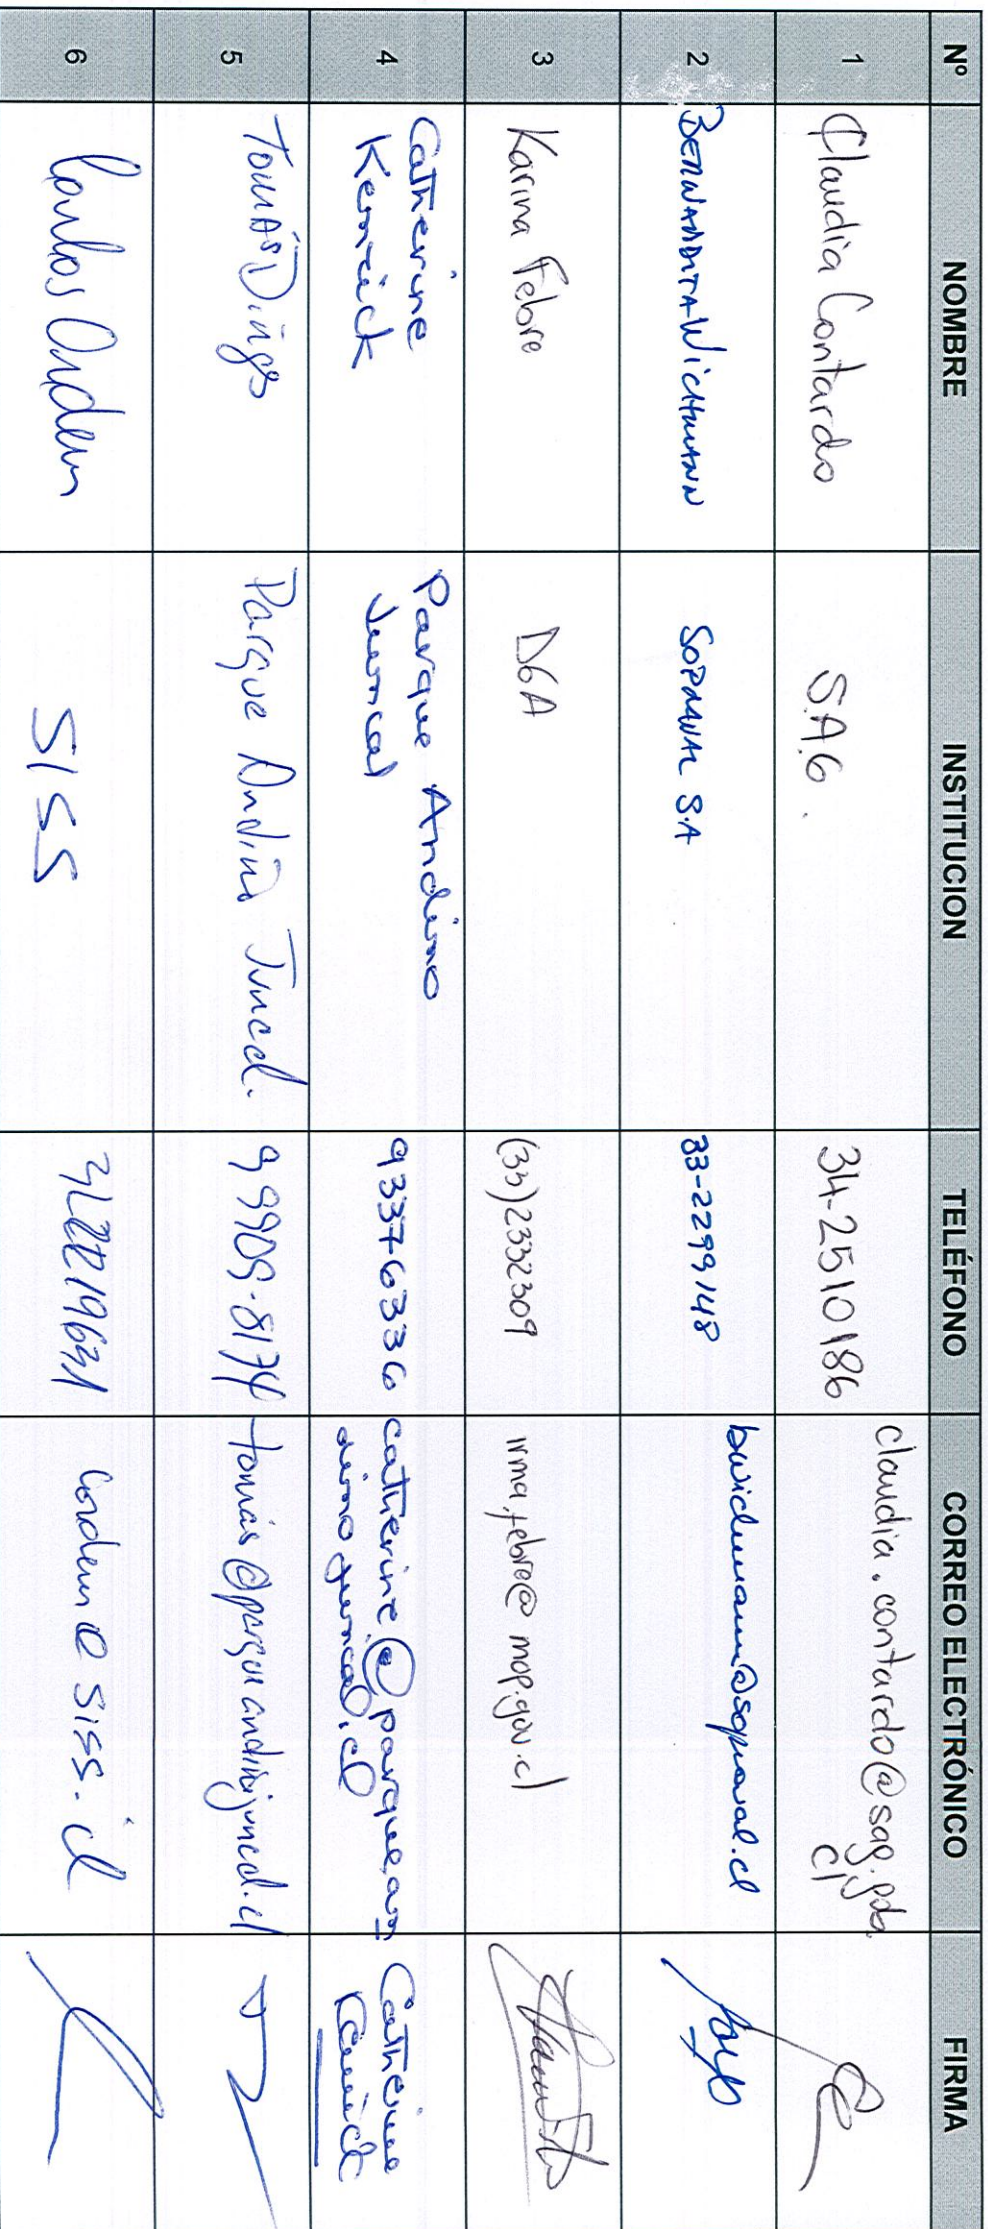 Nº NOMBRE INSTITUCION TELÉFONO CORREO ELECTRÓNICO FIRMA
1 Claudia Contardo S.A.G. 34-2510186 claudia.contardo@sag.gob.cl
2 BERNARDITA WICHMANN SOPRAVAL S.A 33-2299148 bwichmann@sopraval.cl
3 Karina Febre DGA (33)2332309 irma.febre@mop.gov.cl
4 Catherine Kenrick Parque Andino Juncal 93376336 catherine@parqueandinojuncal.cl Catherine Kenrick
5 TOMÁS Dinges Parque Andino Juncal. 9 9909-8174 tomás@parqueandinojuncal.cl
6 Carlos Ordem SISS cordem@siss.cl